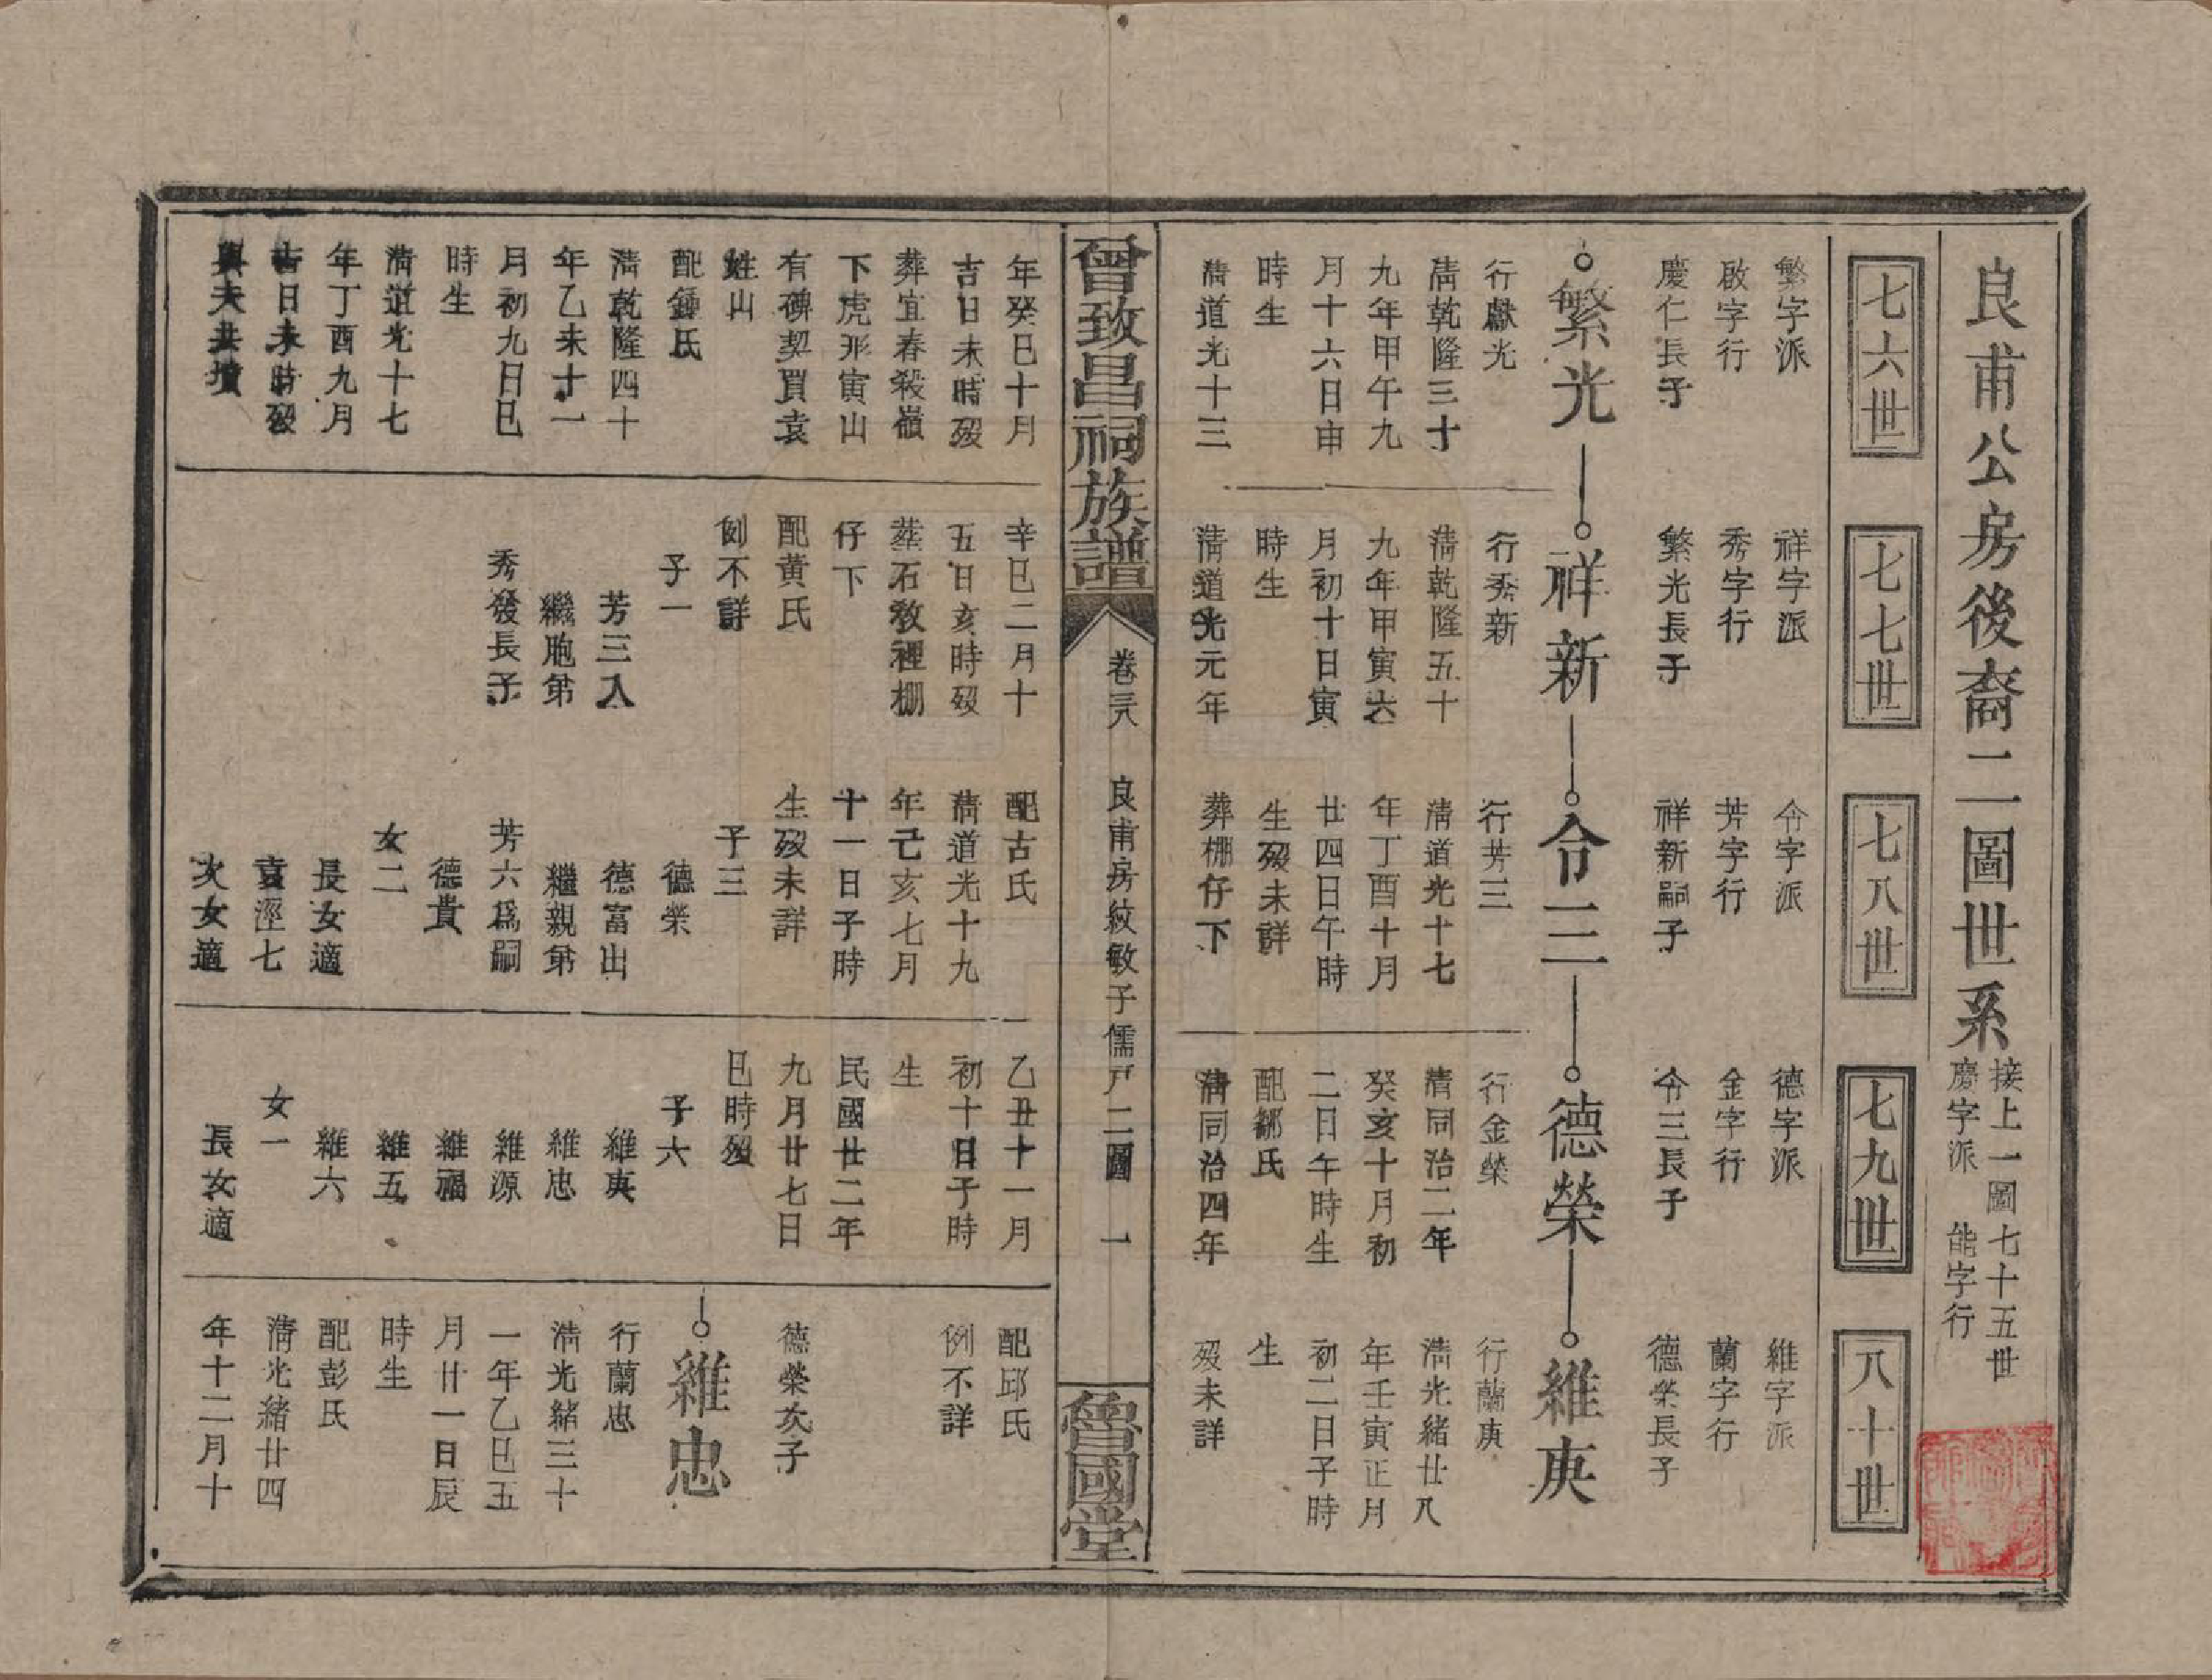 良甫公房後裔二圖世系
接上一圖七十五世
慶字派 能字行
七六世
七七世
七八世
七九世
八十世
繁字派
啟字行
慶仁長子
繁光
行獻光
清乾隆三十
九年甲午九
月十六日申
時生
清道光十三
年癸巳十月
吉日未時歿
葬宜春殺嶺
下虎形寅山
有磚契買袁
姓山
配鍾氏
清乾隆四十
年乙未十一
月初九日巳
時生
清道光十七
年丁酉九月
吉日未時歿
與夫共墳
祥字派
秀字行
繁光長子
祥新
行秀新
清乾隆五十
九年甲寅六
月初十日寅
時生
清道光元年
辛巳二月十
五日亥時歿
葬石敎裡棚
仔下
配黄氏
例不詳
子一
芳三入
繼胞弟
秀發長子
令字派
芳字行
祥新嗣子
令三
行芳三
清道光十七
年丁酉十月
廿四日午時
生歿未詳
葬棚仔下
配古氏
清道光十九
年己亥七月
十一日子時
生歿未詳
子三
德榮
德富出
繼親弟
芳六爲嗣
德貴
女二
長女適
袁涇七
次女適
德字派
金字行
令三長子
德榮
行金榮
清同治二年
癸亥十月初
二日午時生
配鄒氏
清同治四年
乙丑十一月
初十日子時
生
民國廿二年
九月廿七日
巳時歿
子六
維庚
維忠
維源
維福
維五
維六
女一
長女適
維字派
蘭字行
德榮長子
維庚
行蘭庚
清光緒廿八
年壬寅正月
初二日子時
生
歿未詳
配邱氏
例不詳
德榮次子
維忠
行蘭忠
清光緒三十
一年乙巳五
月廿一日辰
時生
配彭氏
清光緒廿四
年十二月十
曾致昌祠族譜
卷三八
良甫房紋敏子儒尸二圖 一
魯國堂